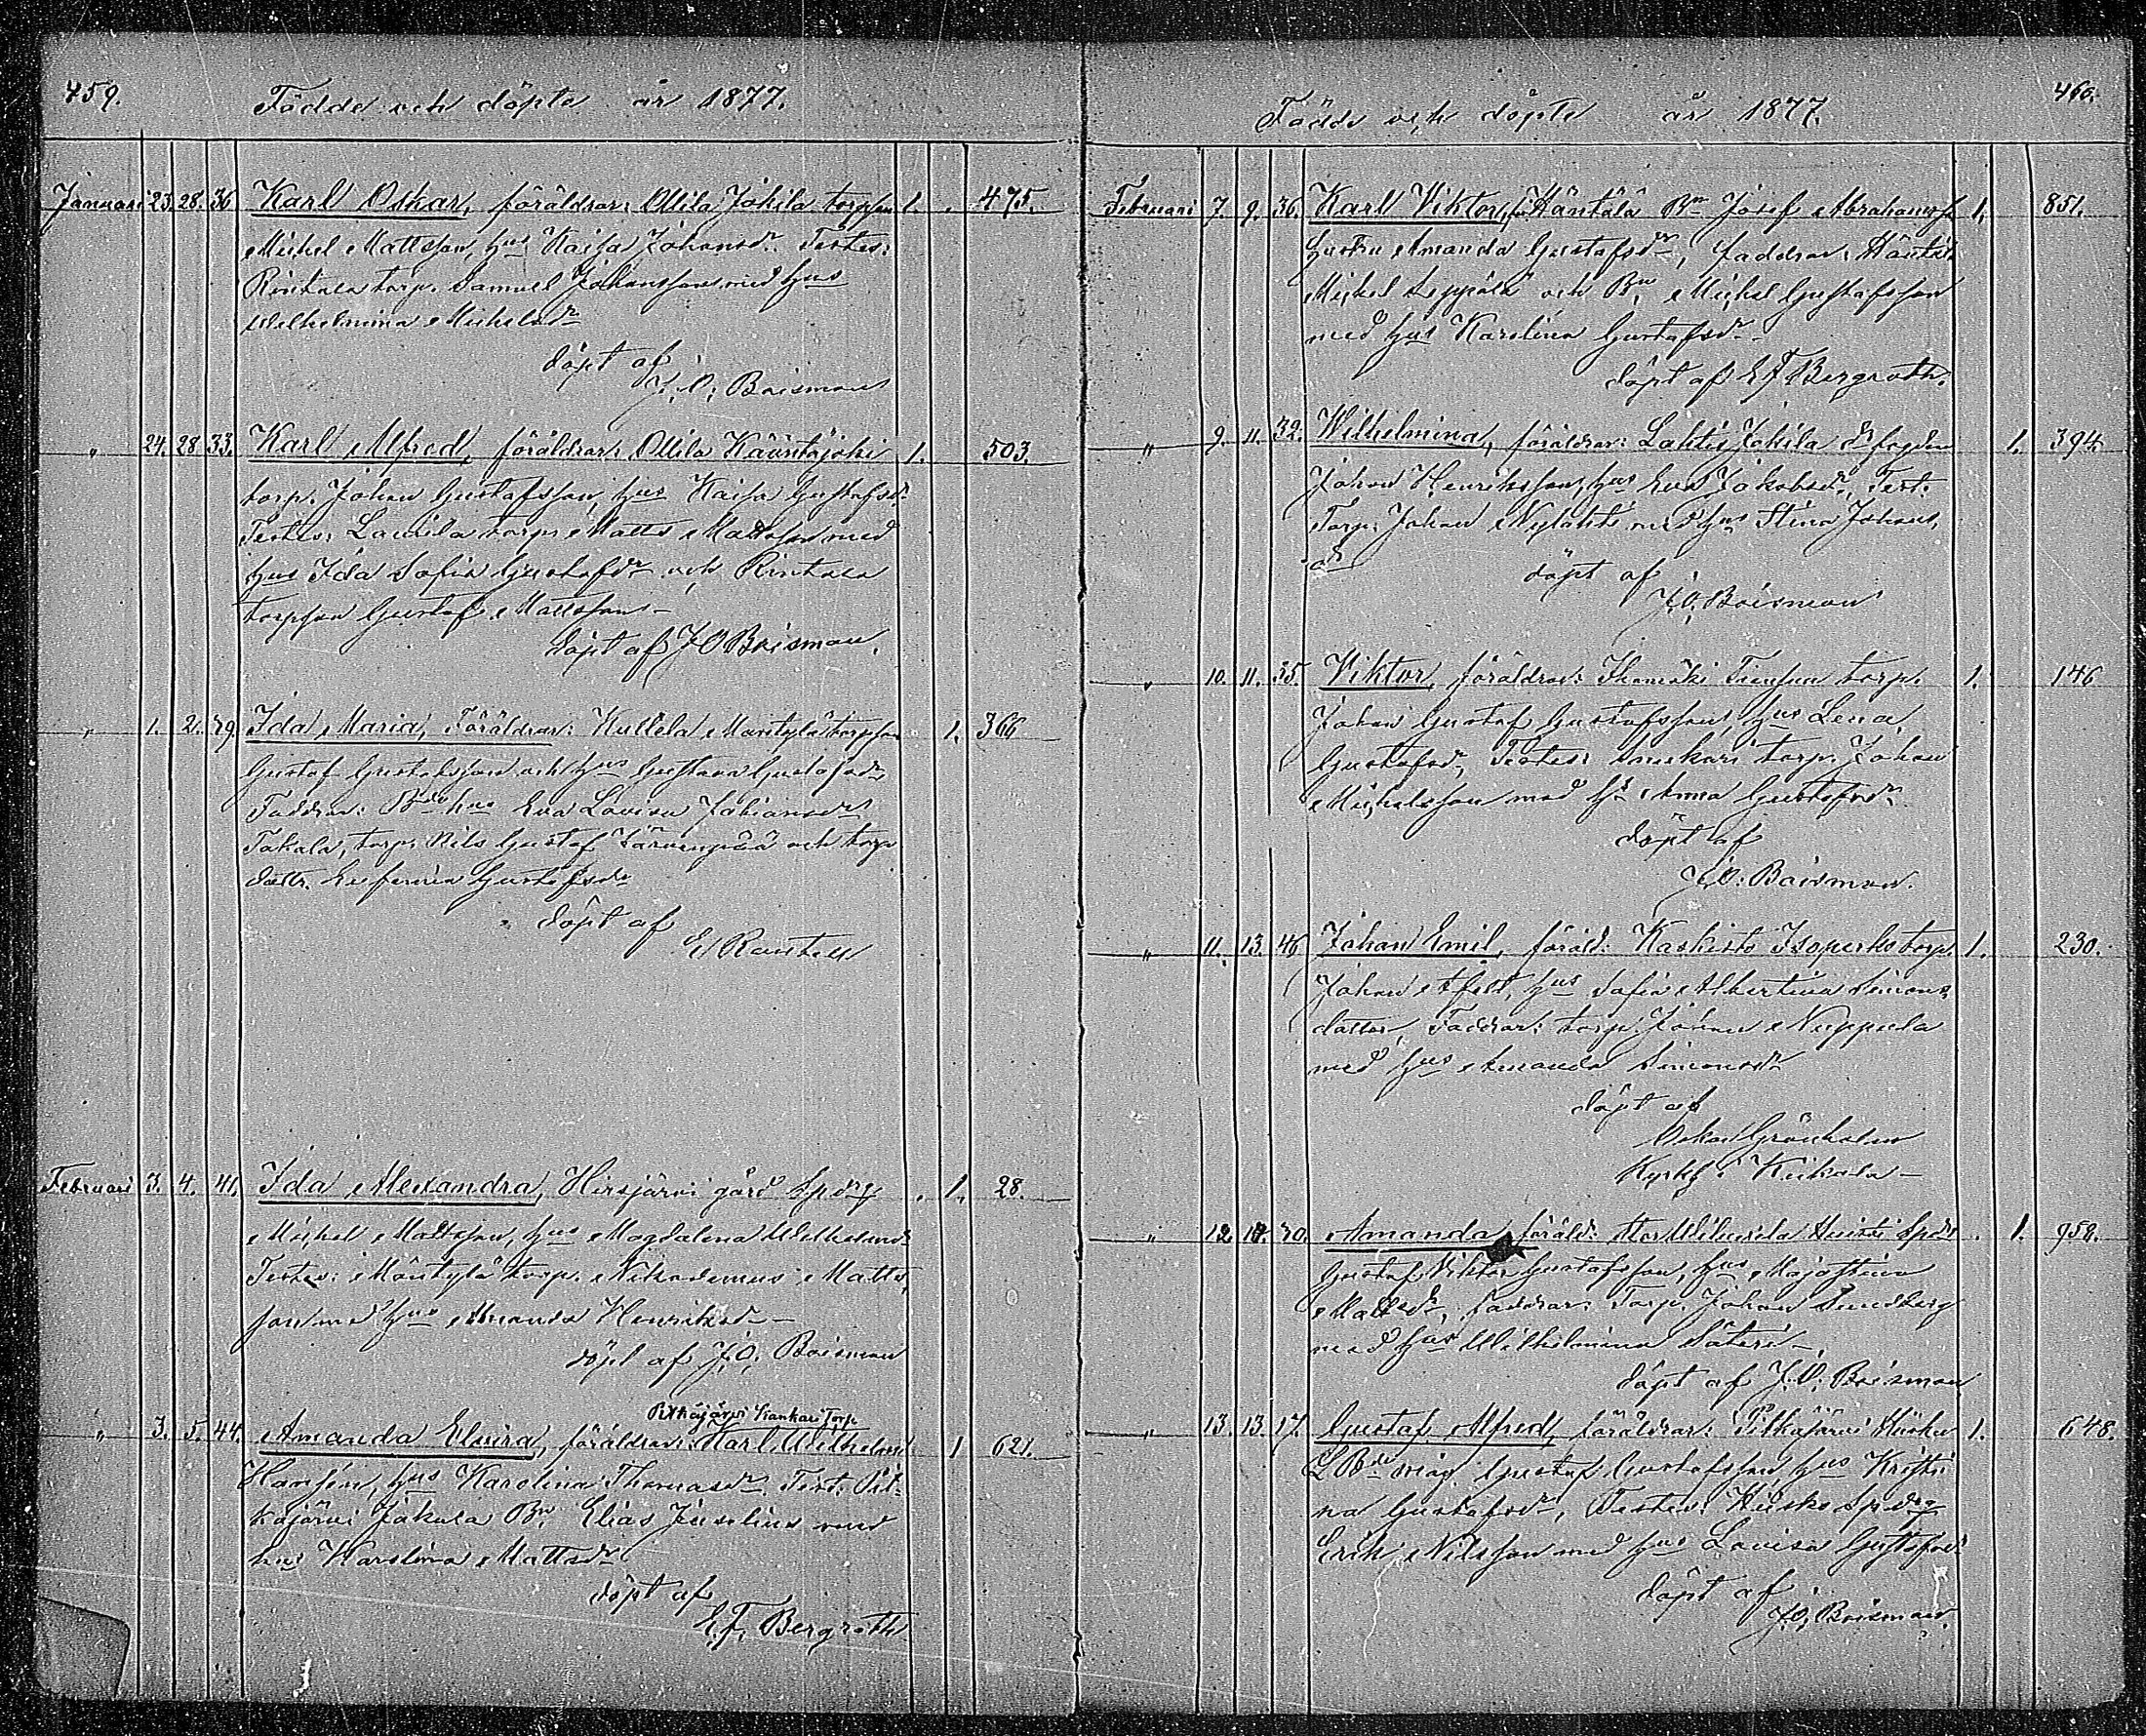 459.
Födde och döpte år 1877.
Januari 23. 28. 36 Karl Oskar, föräldrar: Ollila Jokila torpson 1. 475.
Michel Mattsson, hus Kaisa Johansdr. Testes:
Rintala torp. Samuel Johansson med hus
Wilhelmina Michelsdr
döpt af
J. O. Boisman
" 24. 28. 33. Karl Alfred, föräldrar: Ollila Kääntöjoki 1. 503.
torp. Johan Gustafsson, hus Kaisa Gustafsdr
Testes: Laurila torp. Matts Mattsson med
hus Ida Sofia Gustafsdr och Rintala
torpson Gustaf Mattsson
döpt af J O Boisman.
" 1. 2. 29. Ida Maria, Föräldrar: Kullela Mäntylä torpson 1. 366
Gustaf Gustafsson och hus Gustava Gustafsdr
Faddrar: Bde hus Eva Lovisa Johansdr
Takala, torp. Nils Gustaf Järvenpää och torp
dottr. Eufemia Gustafsdr
döpt af
Februari 3. 4. 41. Ida Alexandra, Hirsjärvi gård Spdrg 1. 28.
Michel Mattsson, hus Magdalena Wilhelmsdr
Testes: Mäntylä torp. Nikodemus Matts
son med hus Amanda Henriksdr
döpt af J. O. Boisman
Pitkäjärvi Kankari Torp.
" 3. 5. 44. Amanda Elvira, föräldrar: Karl Wilhelm 1 621.
Hansson, hus Karolina Thomasdr. Test. Pit-
käjärvi Jakula Bn. Elias Juselius med
hus Karolina Mattsdr
döpt af
E. F. Bergroth
460.
Födde och döpte år 1877.
Februari 7. 9. 36. Karl Viktor, Häntälä Bn Josef Abrahamsson 1. 851.
hustru Amanda Gustafsdr, faddrar: Häntälä
Michel Seppälä och Bn. Michel Gustafsson
med hus Karolina Gustafsdr
döpt af E F Bergroth.
" 9. 11. 32. Wilhelmina, föräldrar: Lahti Jokila 1. 394
Johan Henriksson, hus Eva Jakobsdr. Test:
Torp. Johan Nylahti med hus Stina Johans
dr
döpt af
J. O. Boisman
" 10. 11. 35. Viktor, föräldrar: torp. 1. 146
Johan Gustaf Gustafsson, hus Lena
Gustafsdr, Testes: torp. Johan
Michelsson med hus Anna Gustafsdr
döpt af
J. O. Boisman.
" 11. 13. 46 Johan Emil, föräld: Kaskisto Isoperko torp. 1. 230.
Johan hus Sofia Albertina Simons
dotter, Faddrar: torp. Johan Nuppula
med hus Amanda Simonsdr
döpt af
Oskar Grönholm
Kyrkh i Kiikala
" 12. 30. Amanda, föräld: 1. 958.
Gustaf Viktor Gustafsson, hus Maja Stina
Mattsdr, faddrar: Torp. Johan Sundberg
med hus Wilhelmina Säteri
döpt af J. O. Boisman
" 13. 13. 17. Gustaf Alfred, föräldrar: Pitkäjärvi 1. 648.
Gustaf Gustafsson, hus Kristi
na Gustafsdr, Testes:
Erik Nilsson med hus Lovisa Gustafsdr
döpt af
J. O. Boisman.